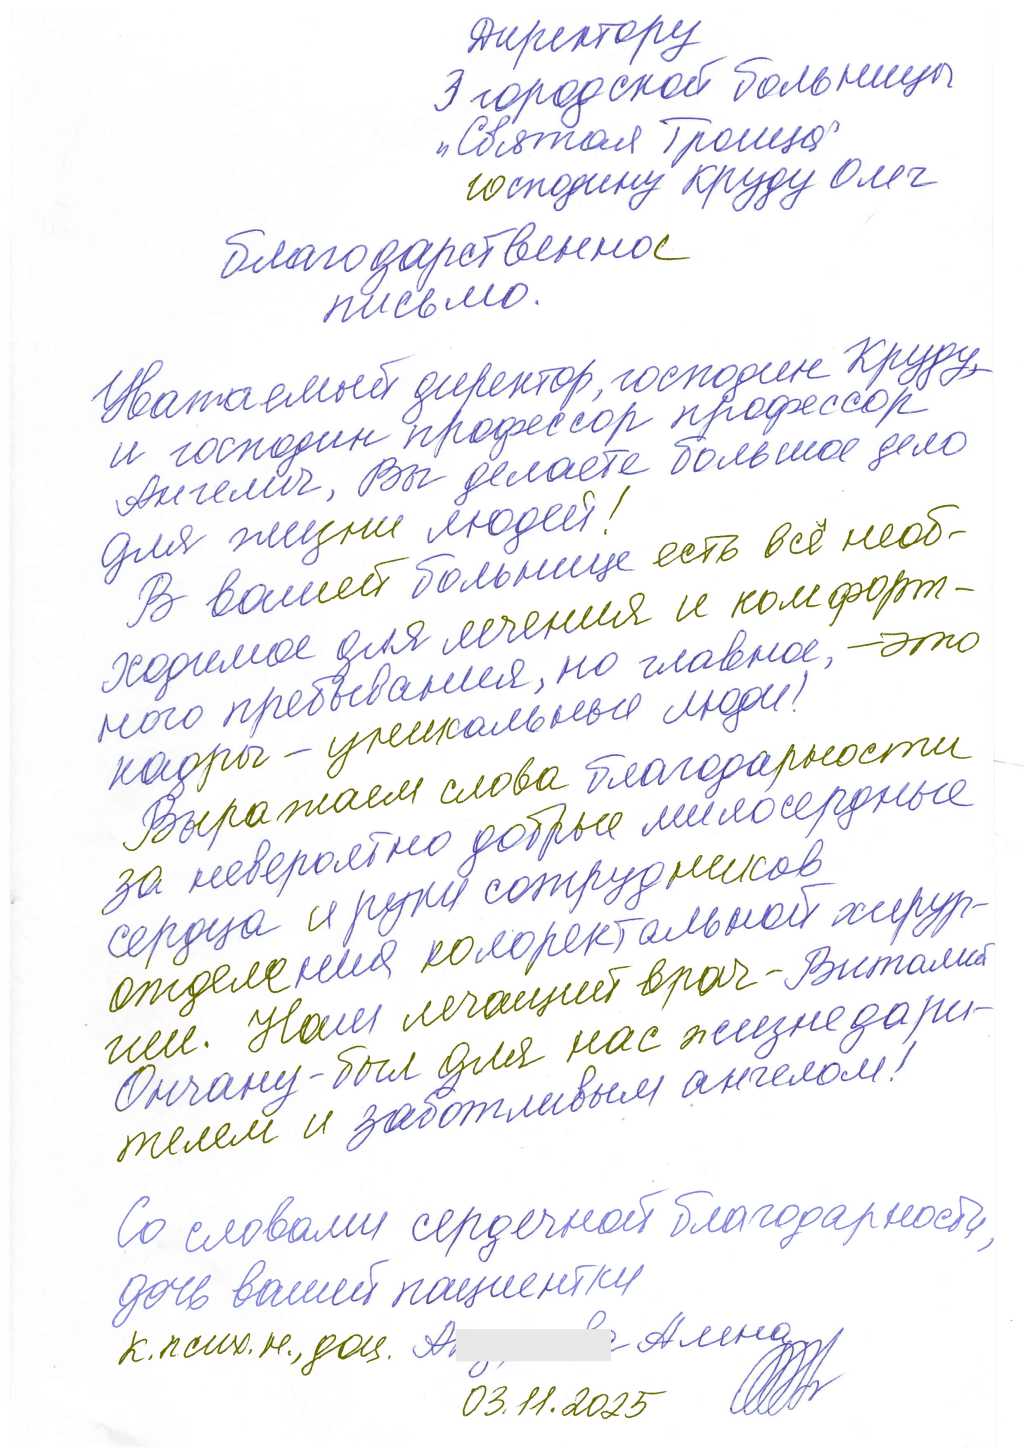 Директору
3 городской больницы
„Святая Троица"
господину Круду Олег
Благодарственное
письмо.
Уважаемый директор, господин Круду,
и господин профессор профессор
Ангелич, Вы делаете большое дело
для жизни людей!
В вашей больнице есть всё необ-
ходимое для лечения и комфорт-
ного пребывания, но главное, – это
кадры – уникальные люди!
Выражаем слова благодарности
за невероятно добрые милосердные
сердца и руки сотрудников
отделения колоректальной хирур-
гии. Наш лечащий врач – Виталий
Ончану – был для нас жизнедари-
телем и заботливым ангелом!
Со словами сердечной благодарности,
дочь вашей пациентки
к.псих.н., доц. Алена
03.11.2025